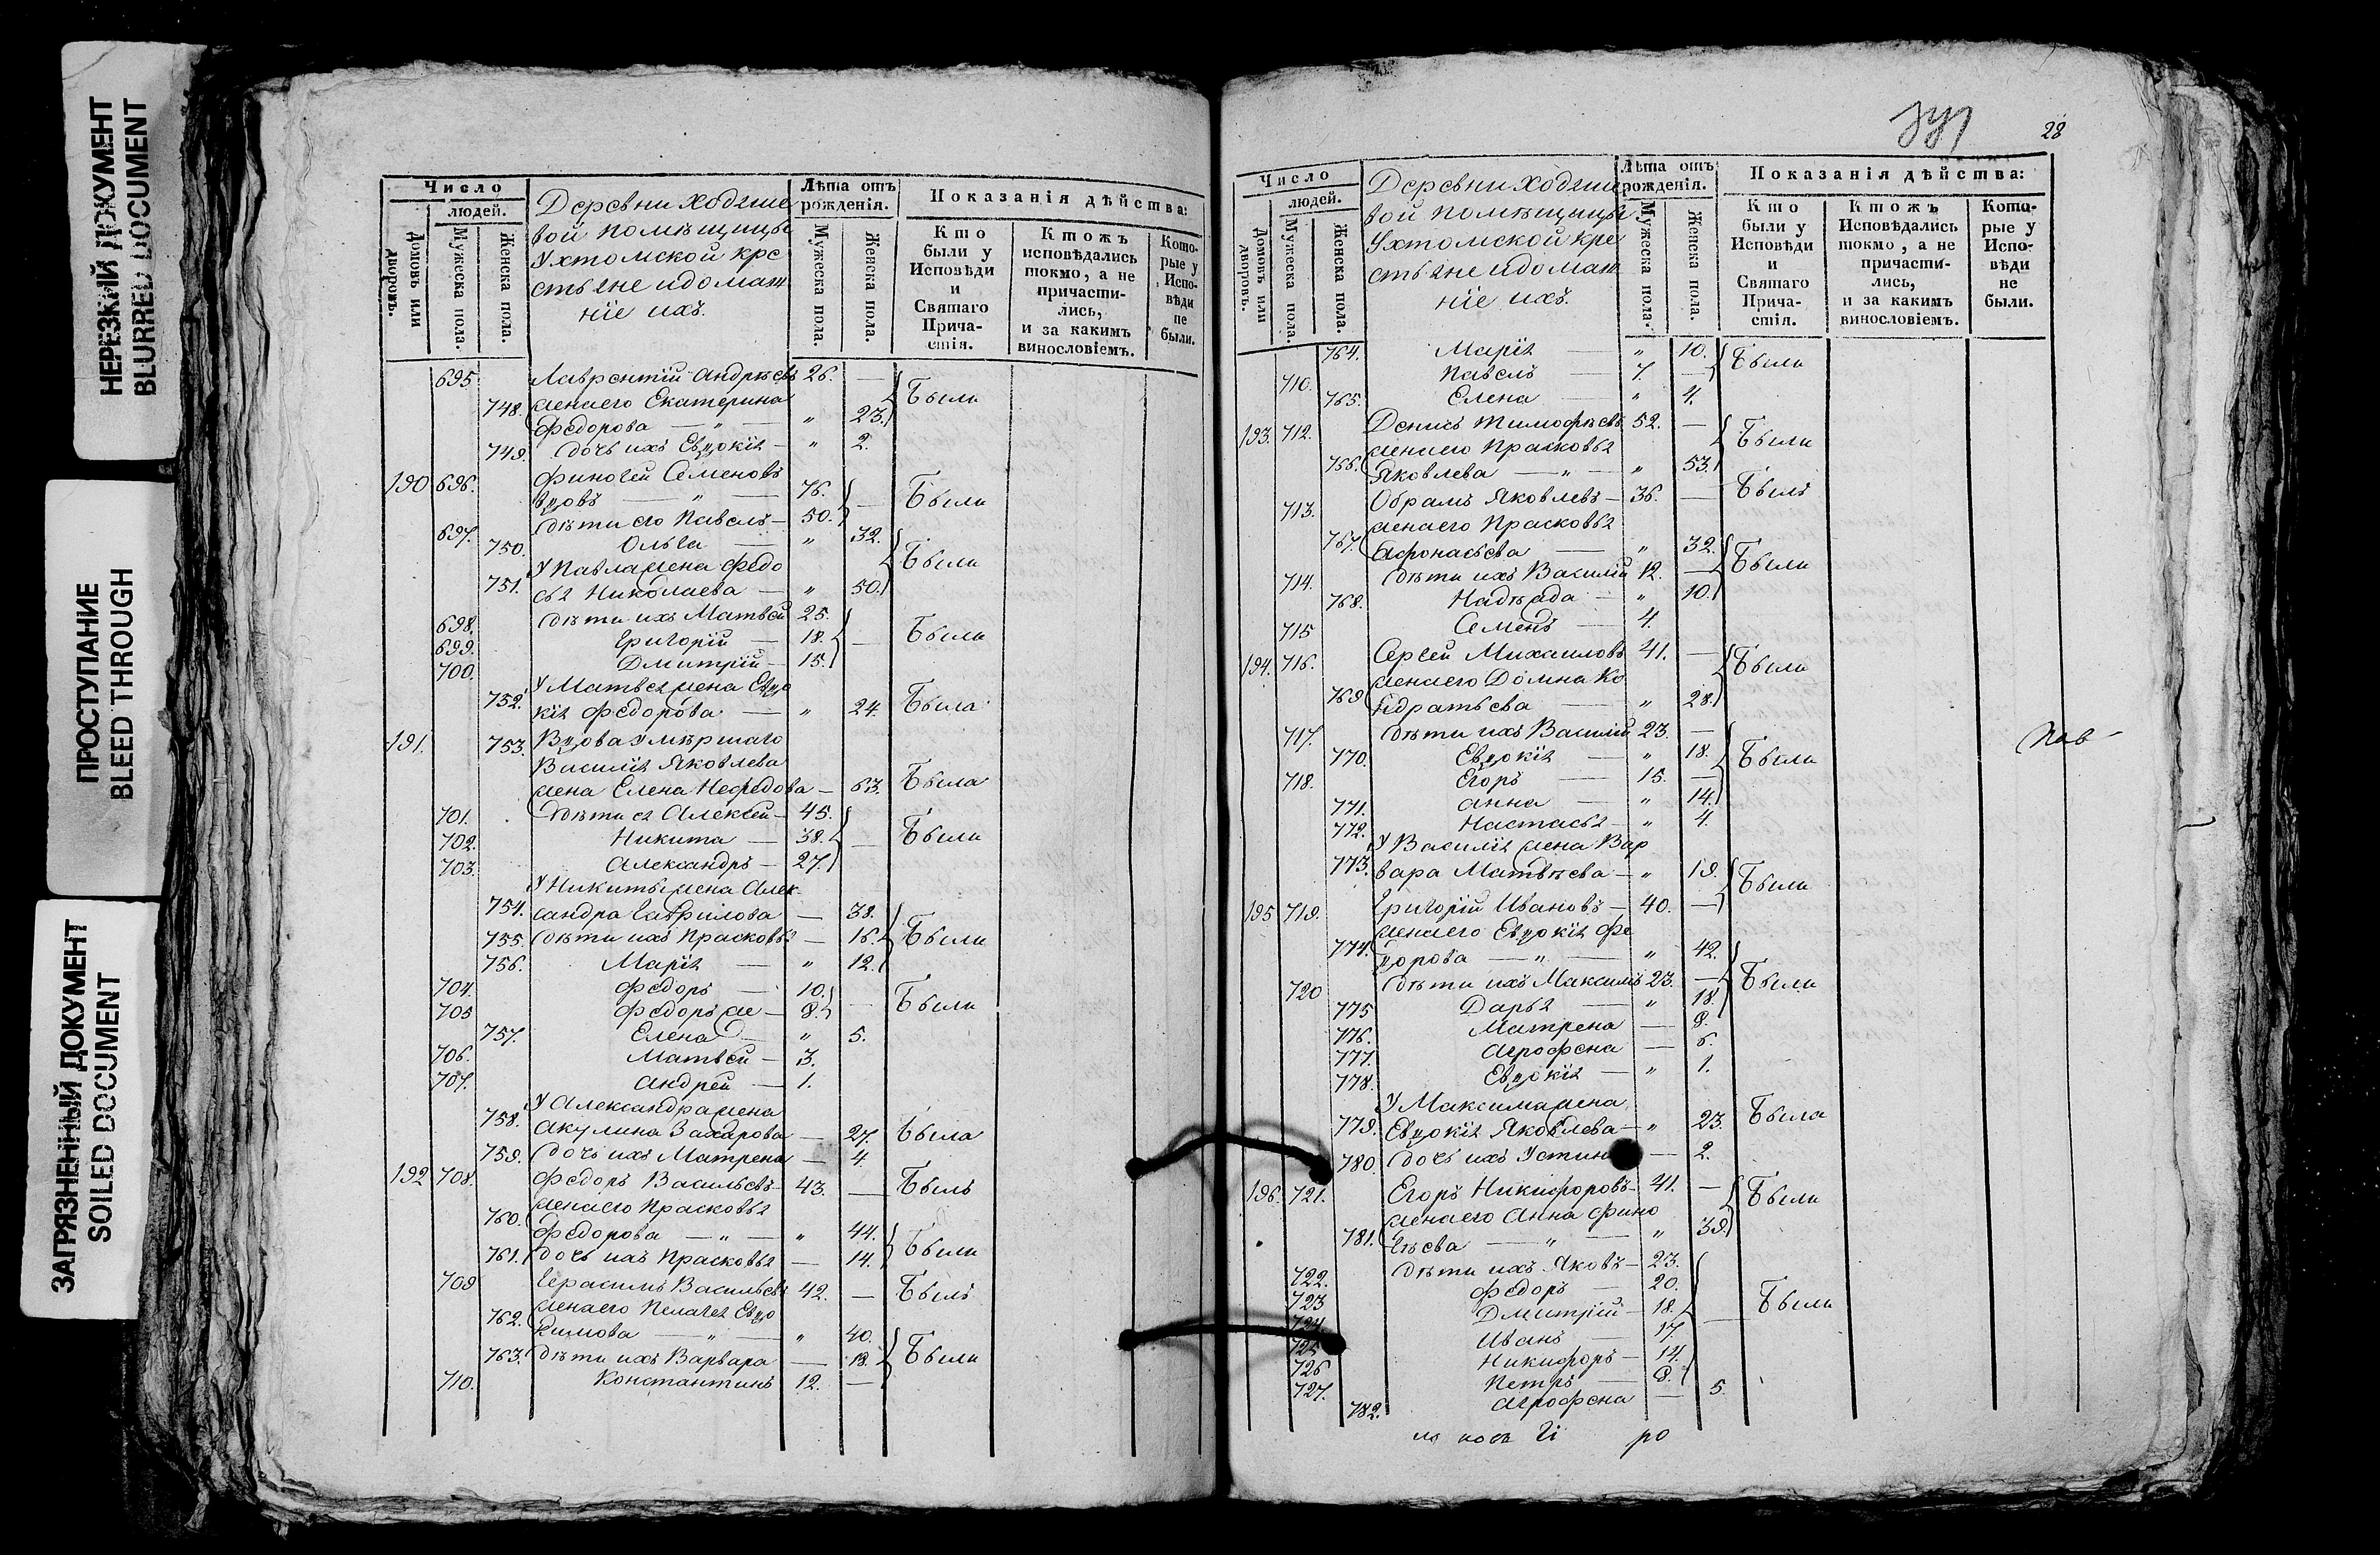 НЕРЕЗКИЙ ДОКУМЕНТ
BLURRED DOCUMENT
ПРОСТУПАНИЕ
BLEED THROUGH
ЗАГРЯЗНЕННЫЙ ДОКУМЕНТ
SOILED DOCUMENT
Число
людей.
Домовъ или дворовъ.
Мужеска пола.
Женска пола.
Деревни Ходяше
вой помѣщицы
Ухтомской кре
стьяне идомаш
нiе ихъ.
Лѣта отъ рожденiя.
Мужеска пола.
Женска пола.
Показанiя дѣйства:
Кто были у Исповѣди и Святаго Причастiя.
Ктожъ исповѣдались токмо, а не причастились, и за какимъ винословiемъ.
Которые у Исповѣди не были.
695 Лаврентiй Андрѣевъ 26. — Были
748. женаего Екатерина
Федорова — " — " 23.
749. дочь ихъ Евдокiя — " 2.
190 696. Финогей Семеновъ
вдовъ — " — 76. — Были
697. дѣти его Павелъ — 50.
750. Ольга — " 32. Были
У Павлажена Федо
751. сья Николаева — " 50.
698. дѣти ихъ Матвей 25.
699. Григорiй — 18. — Были
700. Дмитрiй — 15.
У Матвеяжена Евдо
752. кiя Федорова — " 24. Была
191. 753. Вдоваумѣршаго
Василiя Яковлева
жена Елена Нефедова — 63. Была
701. дѣти ея Алексей — 45.
702. Никита — 38. — Были
703. Александръ — 27.
У Никитыжена Алек
754. сандра Гаврилова — 38.
755. дѣти ихъ Прасковья — 16. Были
756. Марiя — " 12.
704. Федоръ — 10.
705 Федоръ же — 8. — Были
757. Елена — " 5.
706. Матвей — 3.
707. Андрей — 1.
У Александражена
758. Акулина Захарова — 27. Была
759. дочь ихъ Матрена — 4
192 708. Федоръ Васильевъ — 43. — Былъ
женаего Прасковья
760. Федорова — " — " 44.
761. дочь ихъ Прасковья — 14. Были
709 Герасимъ Васильевъ 42. — Былъ
женаего Пелагея Евдо
762. кимова — " — " 40.
763. дѣти ихъ Варвара — 18. Были
710. Константинъ 12. —
28
Число
людей.
Домовъ или дворовъ.
Мужеска пола
Женска пола.
Деревни Ходяше
вой помѣщицы
Ухтомской кре
стьяне идомаш
нiе ихъ.
Лѣта отъ рожденiя.
Мужеска пола.
Женска пола.
Показанiя дѣйства:
Кто были у Исповѣди и Святаго Причастiя.
Ктожъ Исповѣдались токмо, а не причастились, и за какимъ винословiемъ.
Которые у Исповѣди не были.
764. Марiя — " 10. Были
710. Павелъ — 7. —
765. Елена — " 4.
193. 712. Денисъ Тимофѣевъ 52. — Были
женаего Прасковья
766. Яковлева — " — " 53.
713. Обрамъ Яковлевъ — 36. — Былъ
женаего Прасковья
767. Афонасьева — " 32. Были
714. дѣти ихъ Василiй 12. —
768. Надѣжда — " 10.
715 Семенъ — 4.
194. 716. Сергей Михаиловъ 41. — Были
женаего Домна Ко
769 ндратьева — " 28.
717. дѣти ихъ Василiй 23. —
770. Евдокiя — " 18. Были
718. Егоръ — 15. —
771. Анна — " 14.
772. Настасья — " 4.
У Василiя жена Вар
773. вара Матвѣева — " 19. Были
195 719. Григорiй Ивановъ — 40. —
женаего Евдокiя Фе
774. дорова — " — " 42.
720 дѣти ихъ Максимъ 23. — Были
775 Дарья — " 18.
776. Матрена — 8.
777. Агрофена — 6.
778. Евдокiя — " 1.
У Максимажена
779. Евдокiя Яковлева — " 23. Была
780. дочь ихъ Устин — 2.
196. 721. Егоръ Никифоровъ — 41. — Были
женаего Анна Фино
781. гѣева — " — " 39.
722. дѣти ихъ Яковъ — 23.
723 Федоръ — 20.
724 Дмитрiй — 18. — Были
725 Иванъ — 17.
726 Никифоръ — 14.
727. Петръ — 8.
782. Агрофена — 5.
Пав-
ро